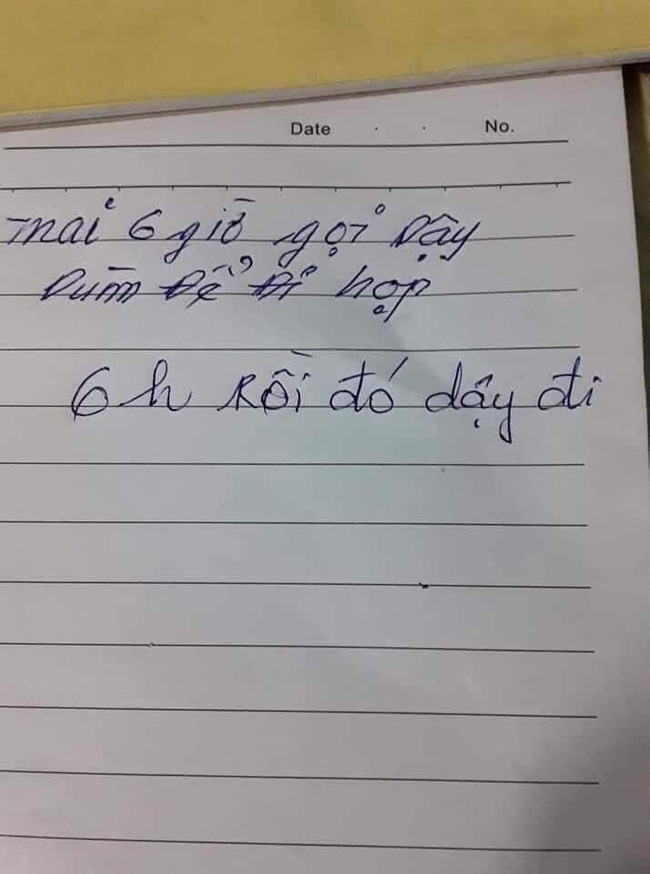 Date . . No.
mai 6 giờ gọi dậy
dùm để đi họp
6h rồi đó dậy đi